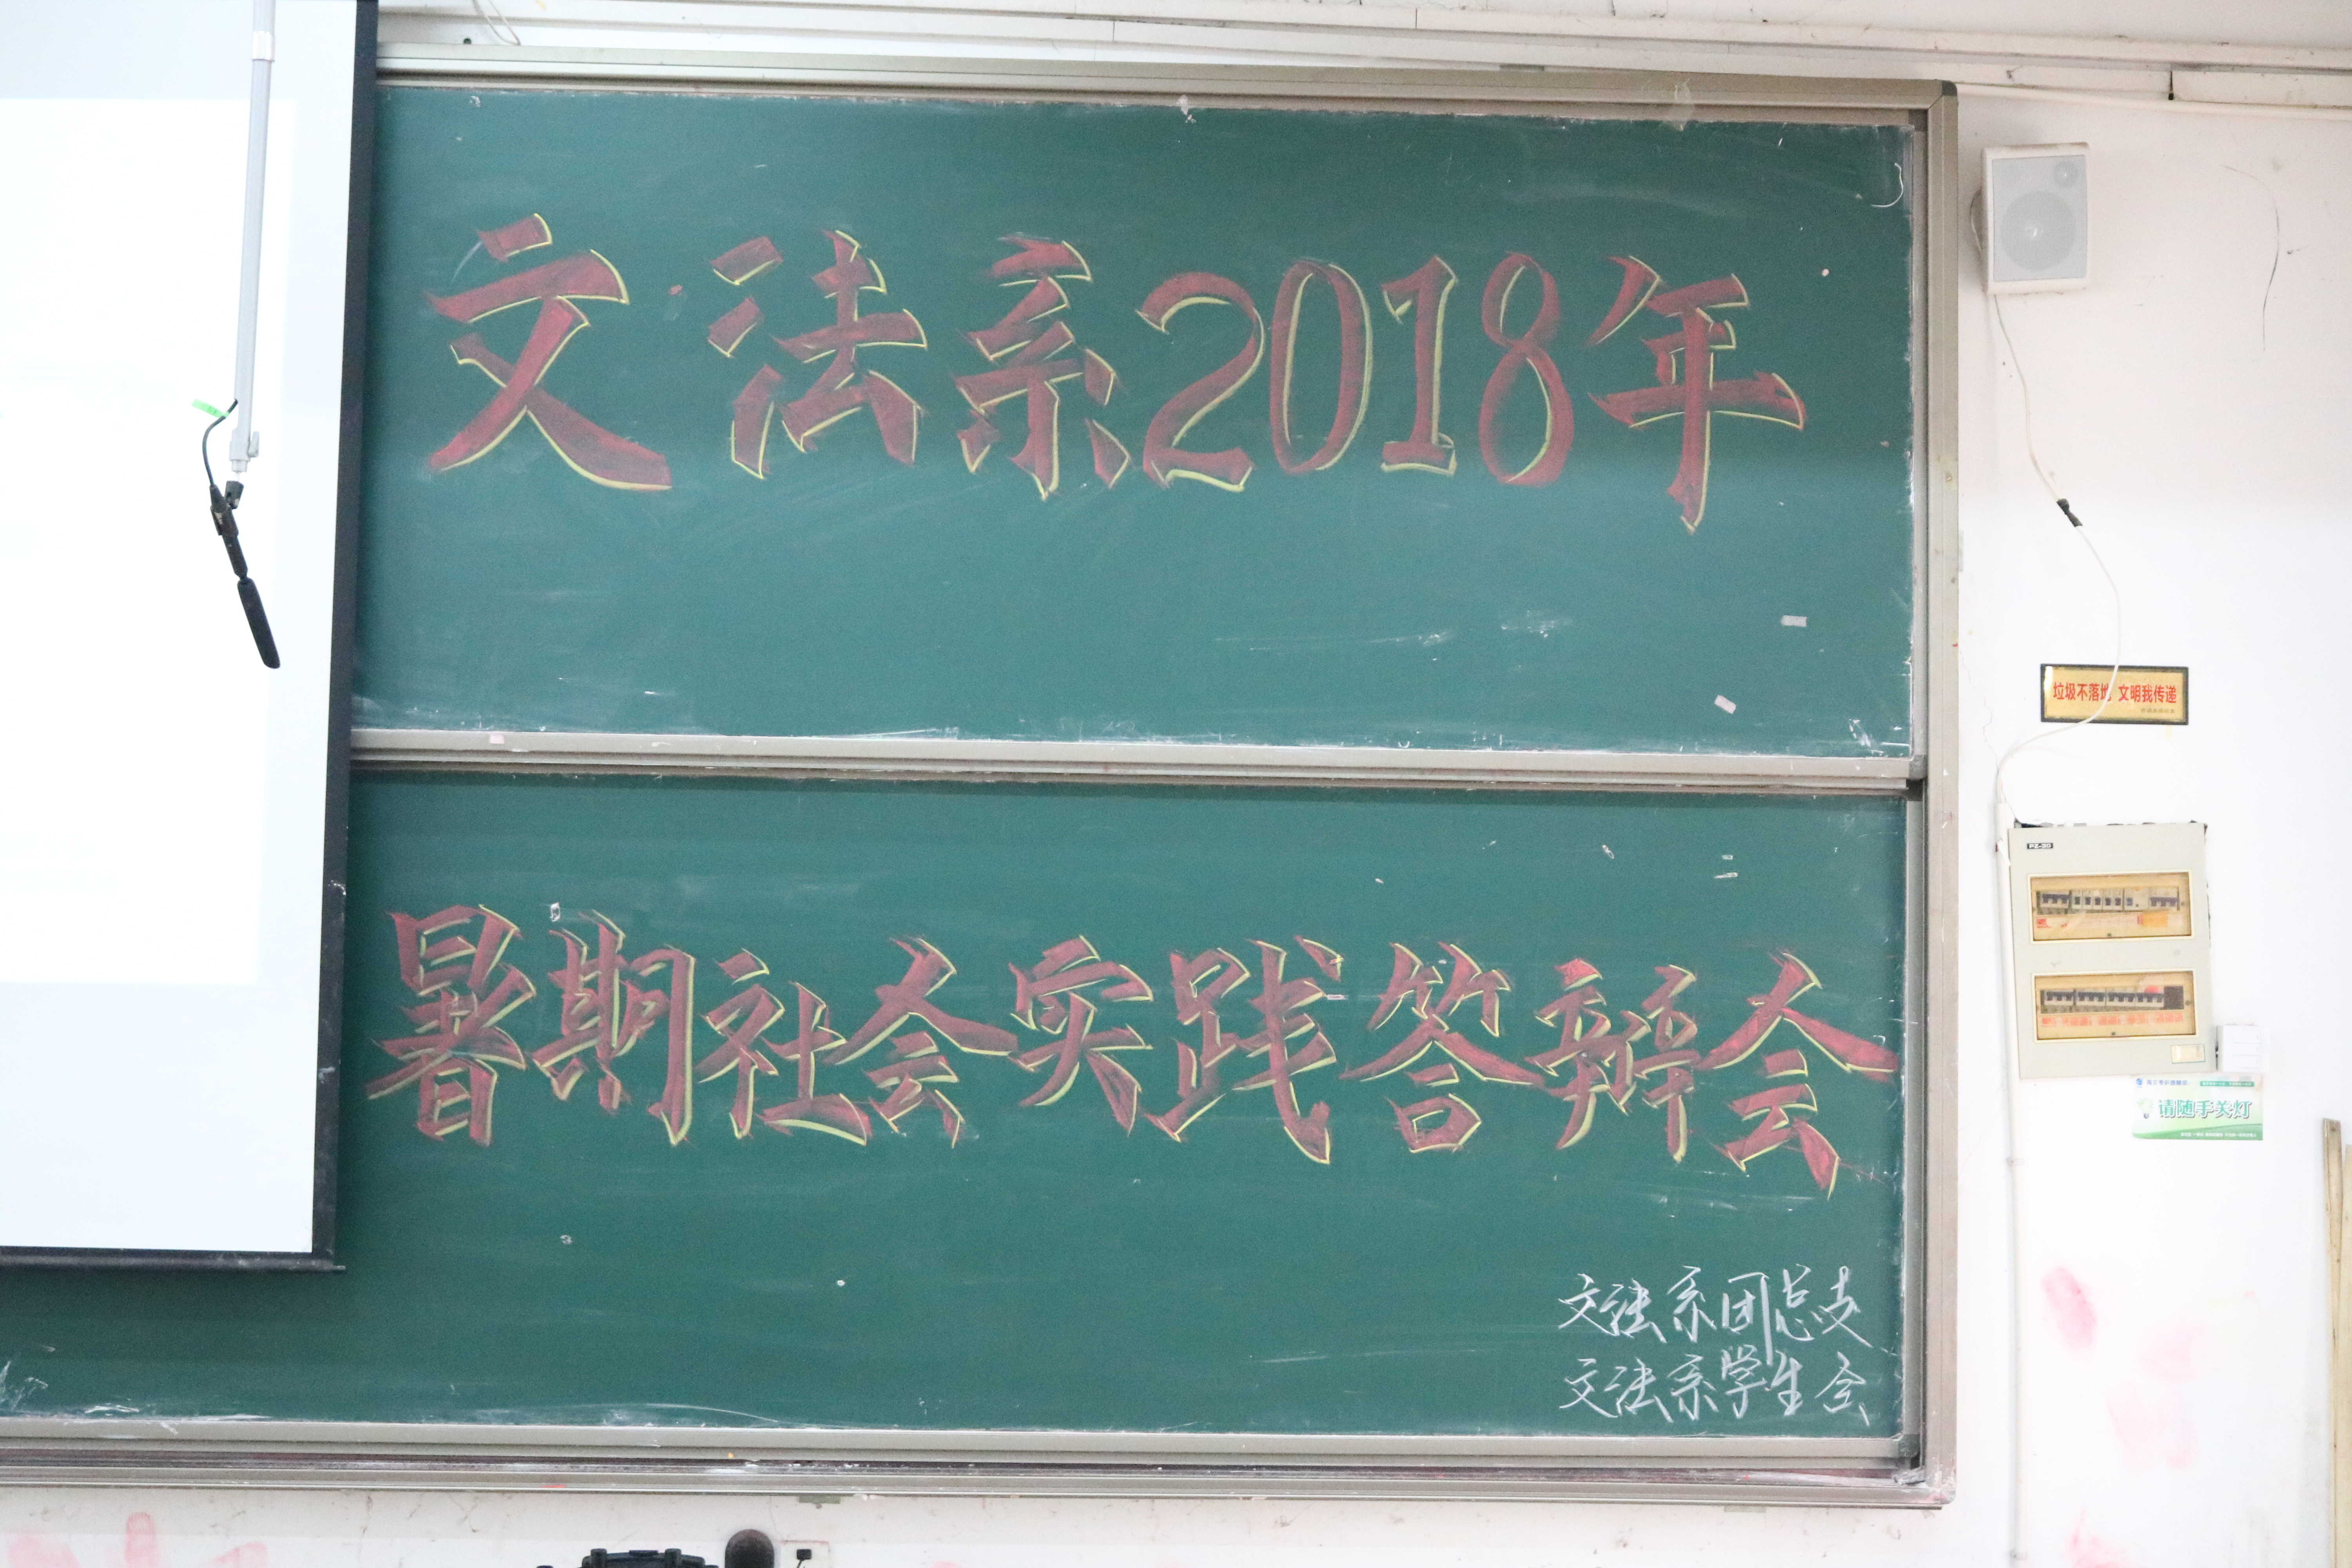 文法系2018年
暑期社会实践答辩会
文法系团总支
文法系学生会
垃圾不落地 文明我传递
PZ-30
请随手关灯